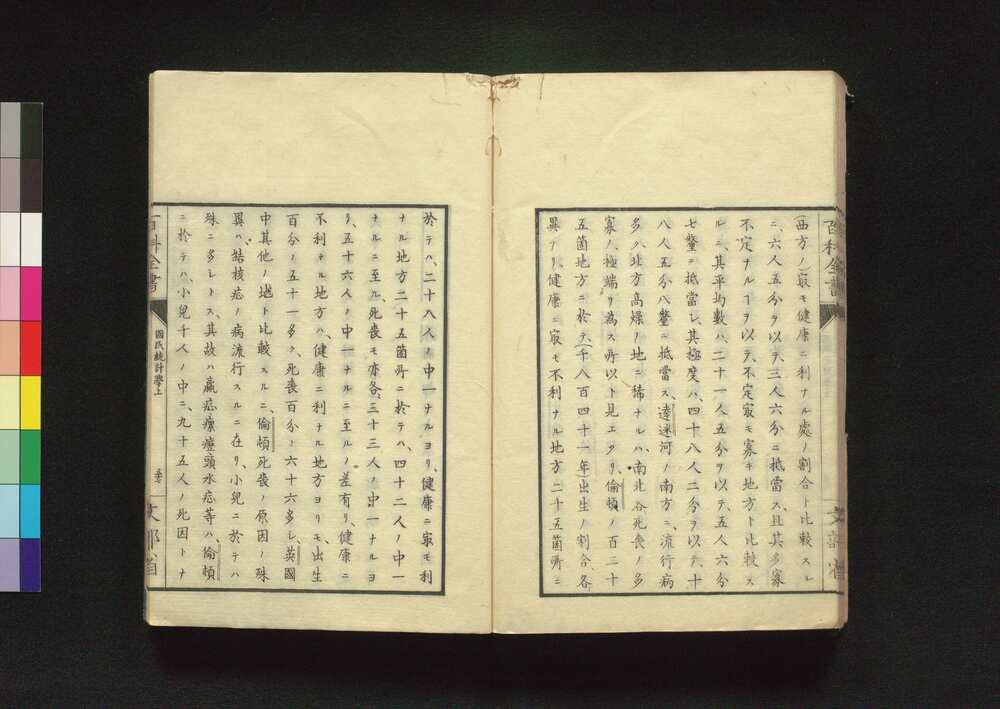 西方ノ㝡モ健康ニ利ナル處ノ割合ト比較スレ
ニ、六人五分ヲ以テ、三人六分ニ抵當ス、且其多寡
不定ナルヿヲ以テ、不定㝡モ寡キ地方ト比較ス
ルニ、其平均數ハ、二十一人五分ヲ以テ、五人六分
七釐ニ抵當シ、其極度ハ、四十八人二分ヲ以テ、十
八人五分八釐ニ抵當ス、達迷河ノ南方ニ、流行病
多ク、北方高燥ノ地ニ稀ナルハ、南北各死喪ノ多
寡ノ極端ヲ為ス所以ト見エタリ、倫頓ノ百二十
五箇地方ニ於テ、千八百四十一年出生ノ割合、各
異ナリ、健康ニ㝡モ不利ナル地方二十五箇所ニ
百科全書
文部省
於テハ、二十八人ノ中一ナルヨリ、健康ニ㝡モ利
ナル地方二十五箇所ニ於テハ、四十二人ノ中一
ナルニ至ル、死喪モ亦各、三十三人ノ中一ナルヨ
リ、五十六人ノ中一ナルニ至ルノ差有リ、健康ニ
不利ナル地方ハ、健康ニ利ナル地方ヨリモ、出生
百分ノ五十一多ク、死喪百分ノ六十六多シ、英國
中其他ノ地ト比較スルニ、倫頓死喪ノ原因ノ殊
異ハ、結核症ノ病流行スルニ在リ、小兒ニ於テハ
殊ニ多シトス、其故ハ羸症瘰癧頭水症等ハ、倫頓
ニ於テハ、小兒千人ノ中ニ、九十五人ノ死因トナ
百科全書
國民統計學上
文部省